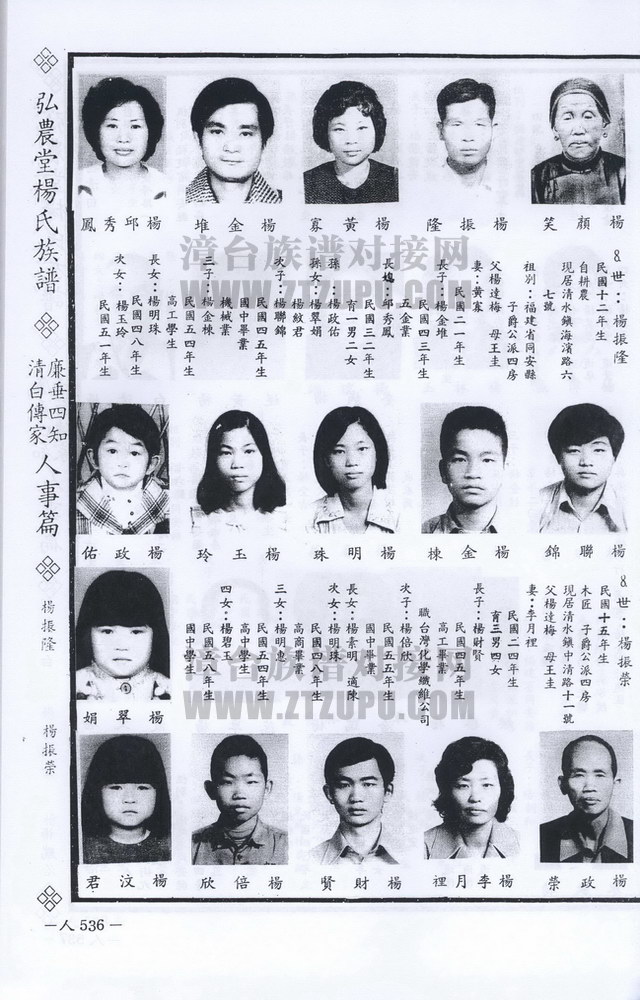 弘農堂楊氏族譜
廉垂四知
清白傳家
人事篇
楊振隆
楊振荣
楊顏笑
楊振隆
楊黃寡
楊金堆
楊邱秀鳳
8世：楊振隆
民國十二年生
自耕農
現居清水鎮海濱路六
七號
祖別：福建省同安縣
子爵公派四房
父楊達梅 母王圭
妻：黃寡
民國二一年生
長子：楊金堆
民國四三年生
五金業
長媳：邱秀鳳
民國三二年生
育一男二女
孫：楊政佑
孫女：楊翠娟
楊紋君
次子：楊聯錦
民國四五年生
國中畢業
機械業
三子：楊金棟
民國五四年生
高工學生
長女：楊明珠
民國四八年生
次女：楊玉玲
民國五一年生
楊聯錦
楊金棟
楊明珠
楊玉玲
楊政佑
8世：楊振荣
民國十五年生
木匠 子爵公派四房
現居清水鎮中清路十一號
父楊達梅 母王圭
妻：李月裡
民國二四年生
育三男四女
長子：楊財賢
民國四五年生
高工畢業
職台灣化學纖維公司
次子：楊倍欣
民國五五年生
國中畢業
長女：楊素明 適陳
次女：楊明珠
民國四八年生
高商畢業
三女：楊明惠
民國五四年生
高中學生
四女：楊碧玉
民國五八年生
國中學生
楊翠娟
楊政荣
楊李月裡
楊財賢
楊倍欣
楊汶君
—人536—
漳台族谱对接网
WWW.ZTZUPU.COM
漳台族谱对接网
WWW.ZTZUPU.COM